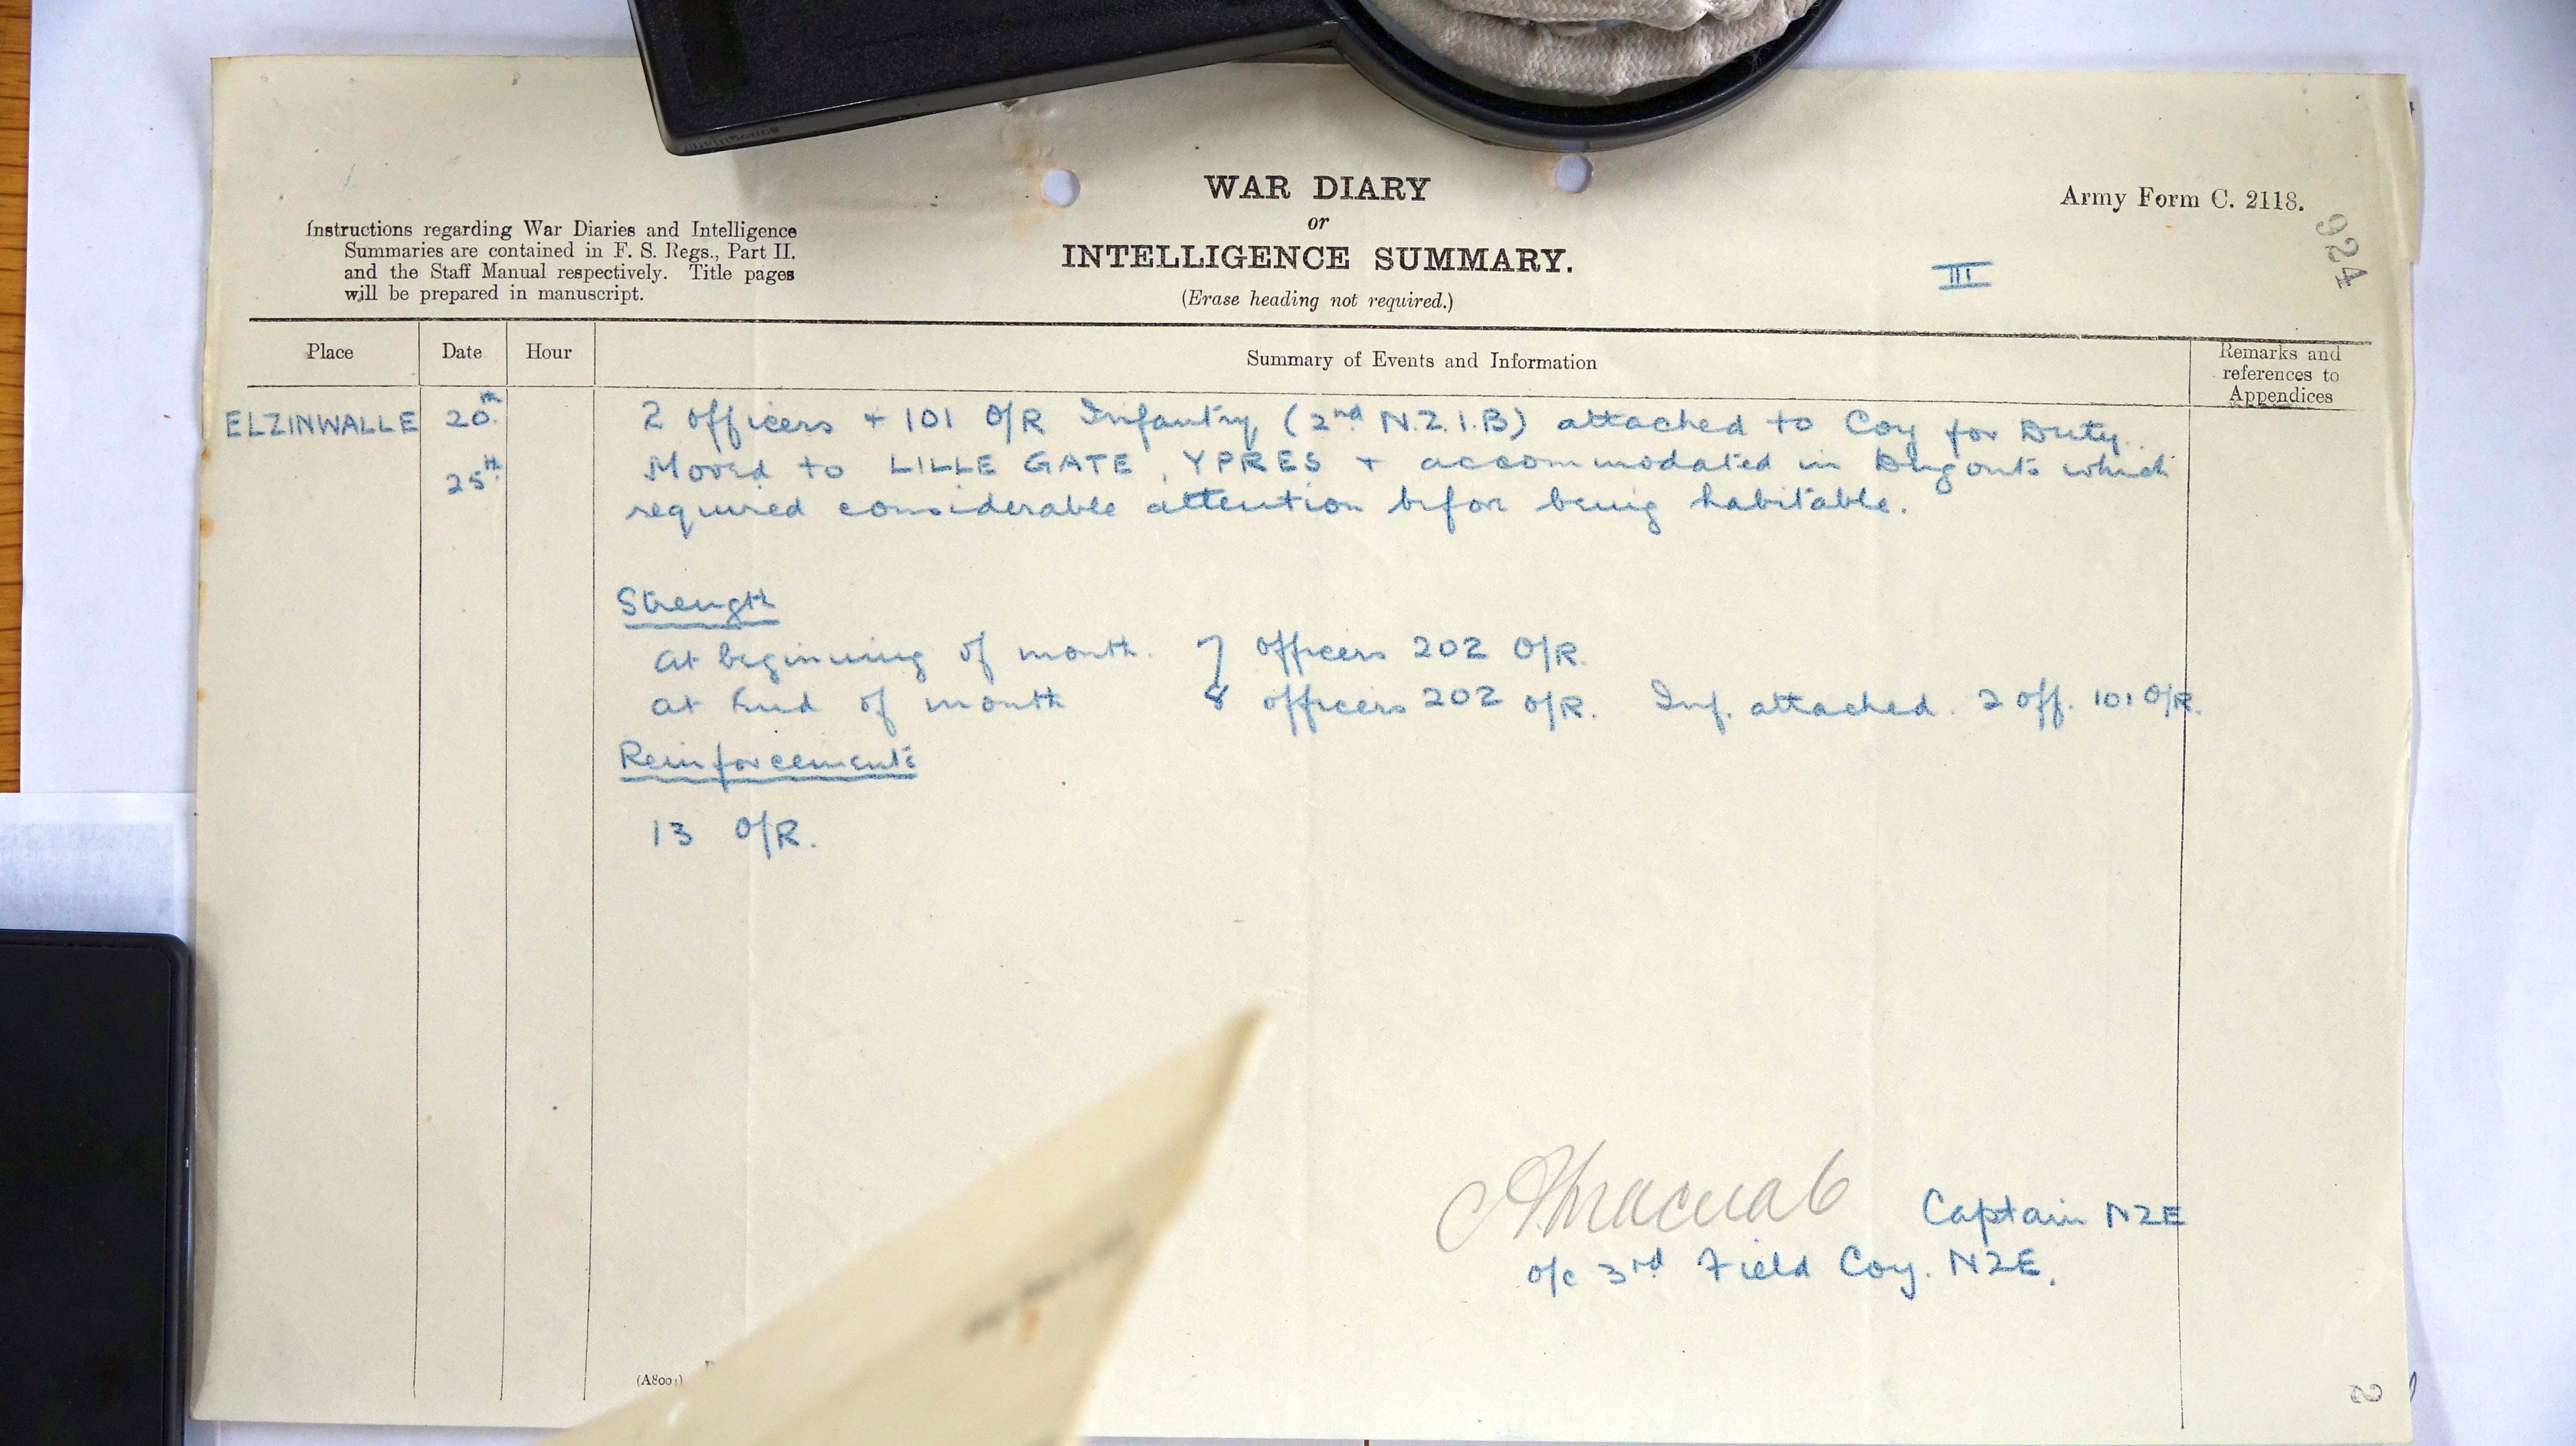 WAR DIARY
or
INTELLIGENCE SUMMARY.
(Erase heading not required.)
Army Form C. 2118.
924
III
Instructions regarding War Diaries and Intelligence
Summaries are contained in F. S. Regs., Part II.
and the Staff Manual respectively. Title pages
will be prepared in manuscript.
Place Date Hour Summary of Events and Information Remarks and
references to
Appendices
ELZINWALLE 20th 2 officers + 101 O/R Infantry (2nd N.Z.I.B) attached to Coy for Duty.
25th Moved to LILLE GATE, YPRES + accommodated in Dugouts which
required considerable attention before being habitable.
Strength
At beginning of month. 7 officers 202 O/R.
at End of month 8 officers 202 O/R. Inf. attached. 2 off. 101 O/R.
Reinforcements
13 O/R.
Captain NZE
o/c 3rd Field Coy. NZE.
(A8001)